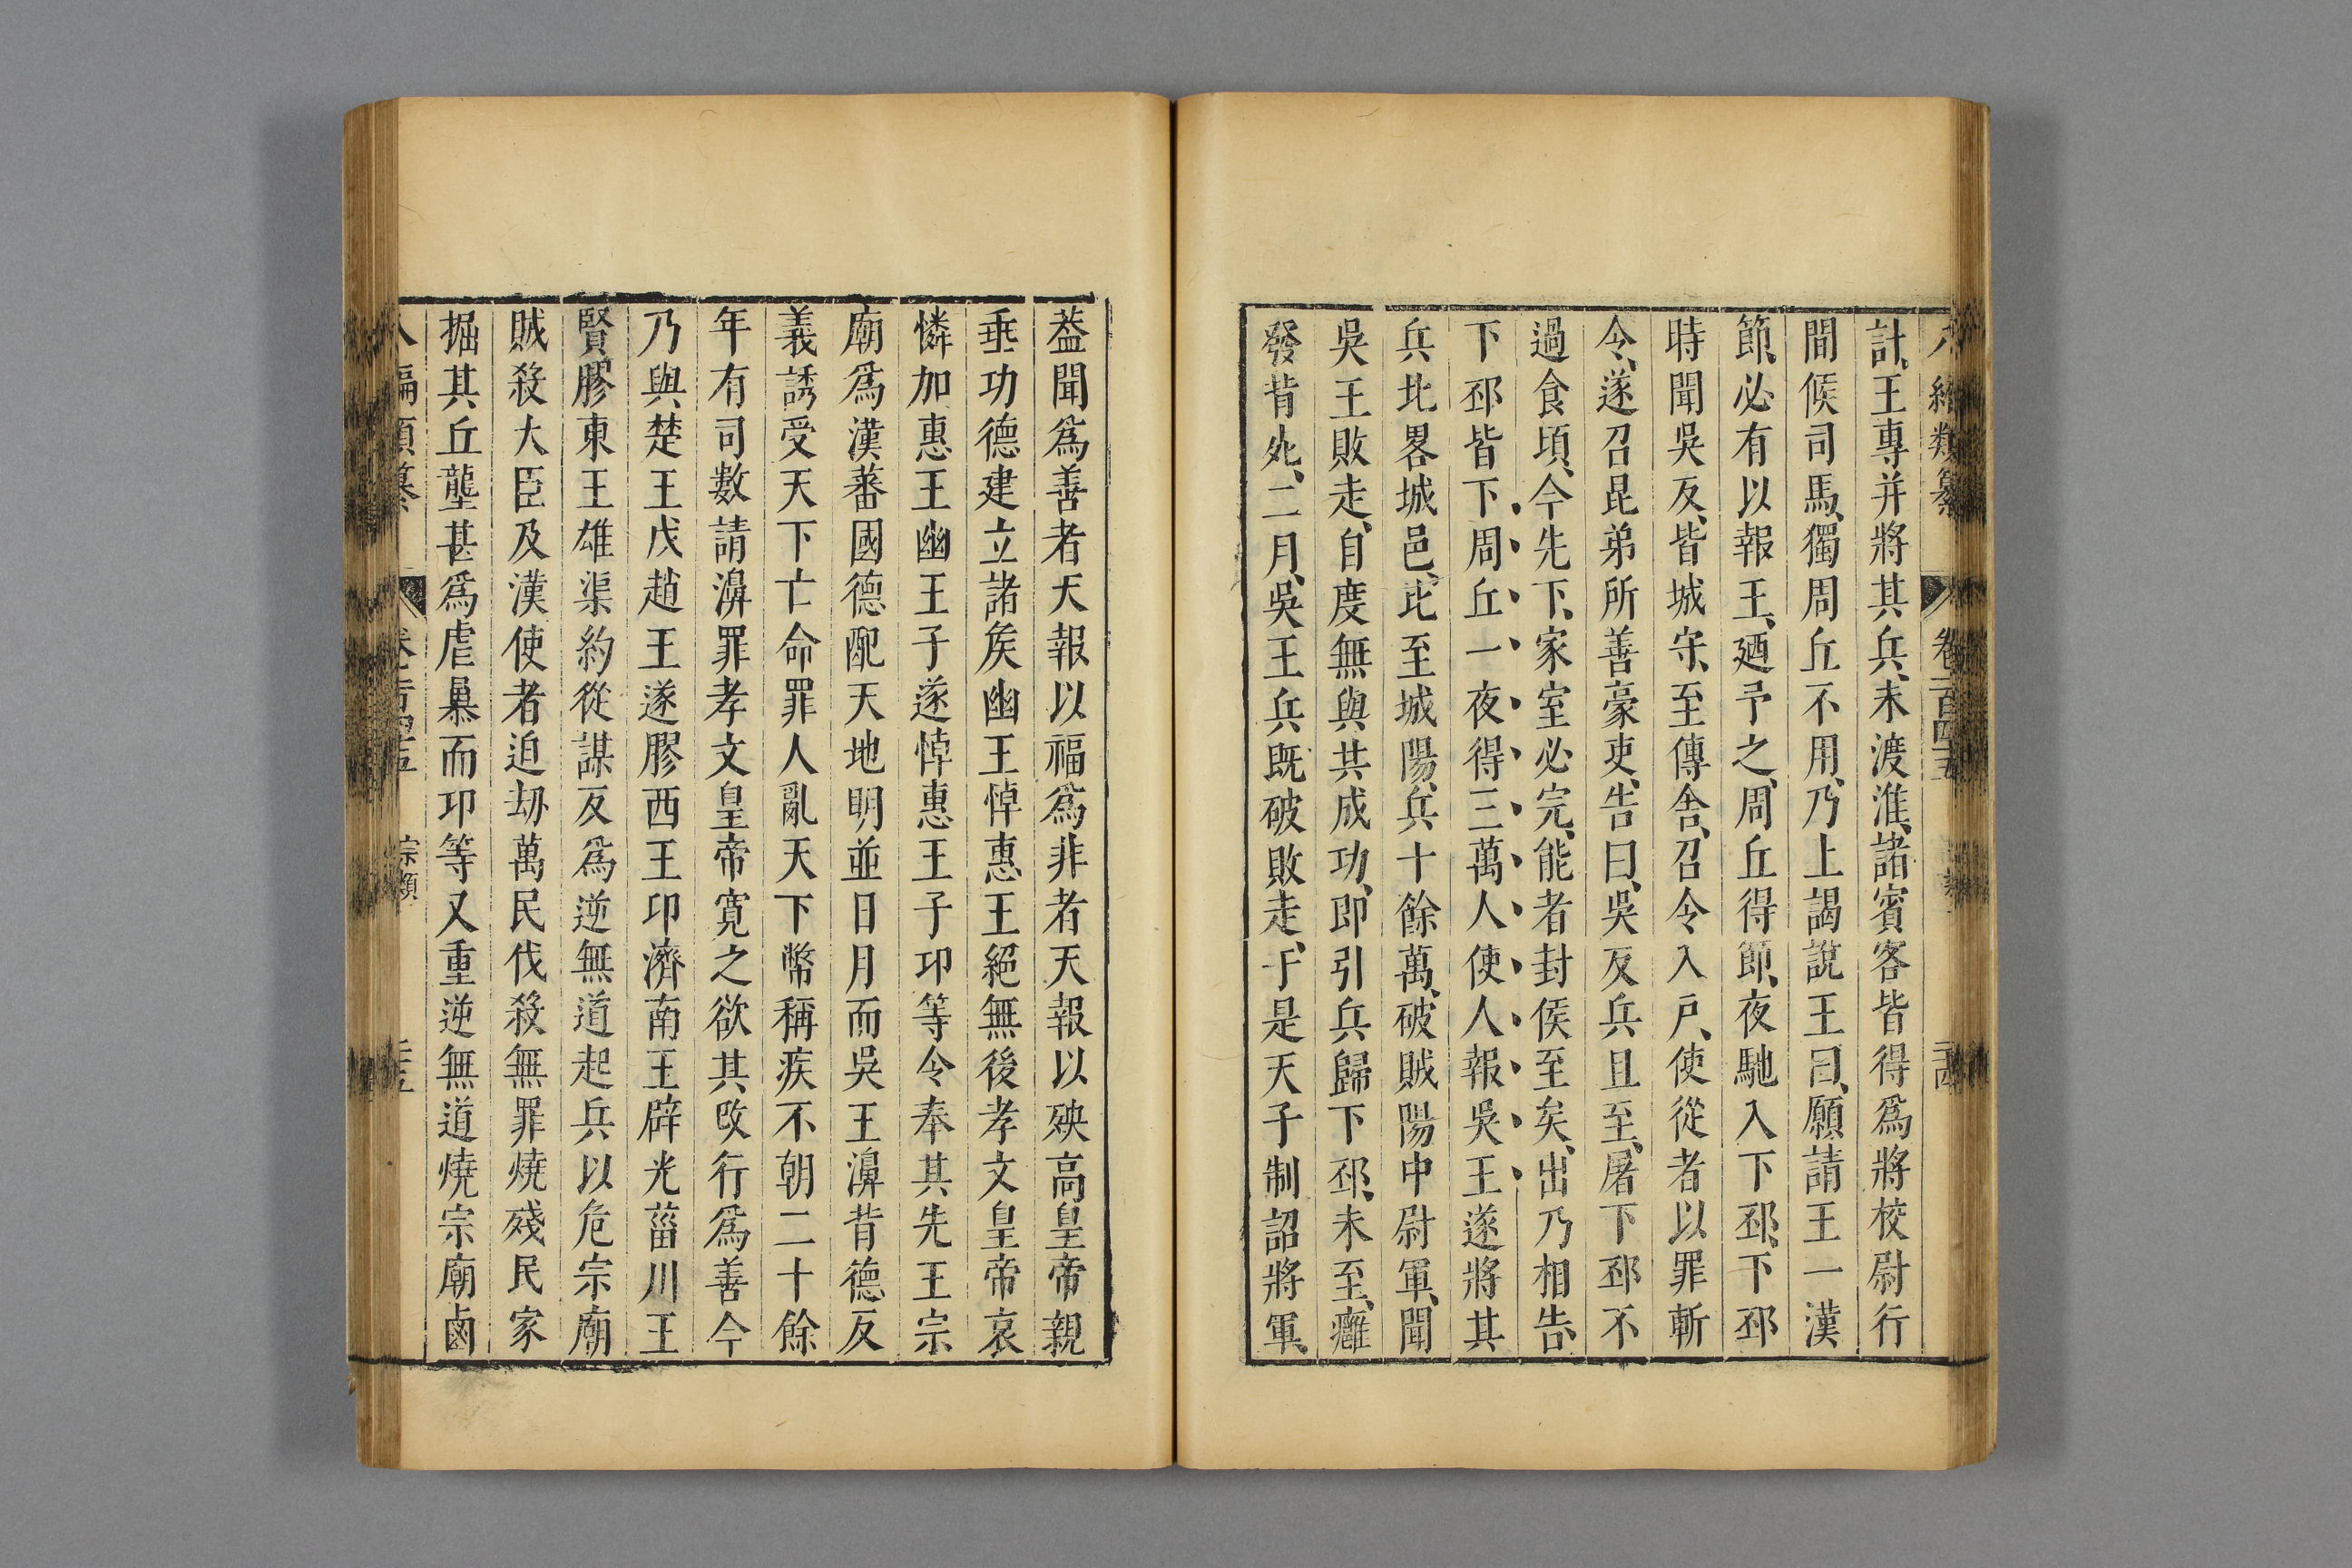 卷一百四十五
計、王專并將其兵、未渡淮、諸賓客皆得爲將校尉行
間候司馬、獨周丘不用、乃上謁説王曰、願請王一漢
節、必有以報王、廼予之、周丘得節、夜馳入下邳、下邳
時聞吳反、皆城守、至傳舍、召令入戸、使從者以罪斬
令、遂召昆弟所善豪吏、告曰、吳反兵且至、屠下邳不
過食頃、今先下、家室必完、能者封侯至矣、出乃相告、
下邳皆下周丘一夜得三萬人使人報吳王遂將其
兵北畧城邑、比至城陽、兵十餘萬、破賊陽中尉軍、聞
吳王敗走、自度無與共成功、即引兵歸下邳、未至、癰
發背死、二月、吳王兵既破敗走、于是天子制詔將軍、
葢聞爲善者天報以福爲非者天報以殃高皇帝親
垂功德建立諸矦幽王悼惠王絕無後孝文皇帝哀
憐加惠王幽王子遂悼惠王子卬等令奉其先王宗
廟爲漢蕃國德配天地明並日月而吳王濞背德反
義誘受天下亡命罪人亂天下幣稱疾不朝二十餘
年有司數請濞罪孝文皇帝寬之欲其攺行爲善今
乃與楚王戊趙王遂膠西王卬濟南王辟光菑川王
賢膠東王雄渠約從謀反爲逆無道起兵以危宗廟
賊殺大臣及漢使者迫劫萬民伐殺無罪燒殘民家
掘其丘壟甚爲虐暴而卬等又重逆無道燒宗廟鹵
八編類纂 卷一百四十五 宗類 三十五